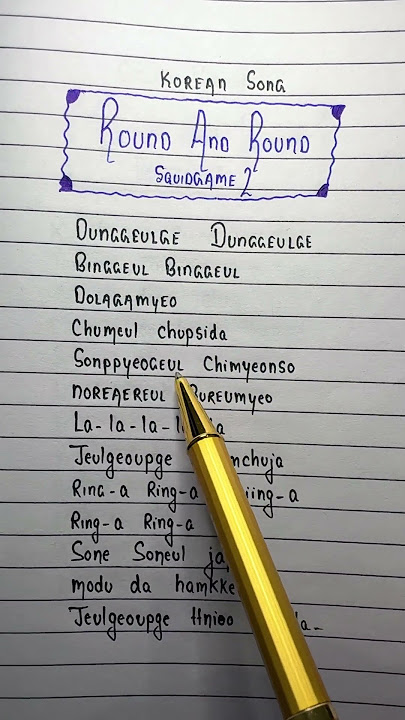 KOREAN SONG
ROUND AND ROUND
SQUIDGAME 2
DUNGGEULGE DUNGGEULGE
BINGGEUL BINGGEUL
DOLAGAMYEO
Chumeul chupsida
SONPPYEOGEUL CHIMYEONSO
NOREAEREUL BUREUMYEO
La-la-la-l
Jeulgeoupge nchuja
Ring-a Ring-a iing-a
Ring-a Ring-a
Sone Soneul ja
modu da hamkke
Jeulgeoupge Hnioo a-